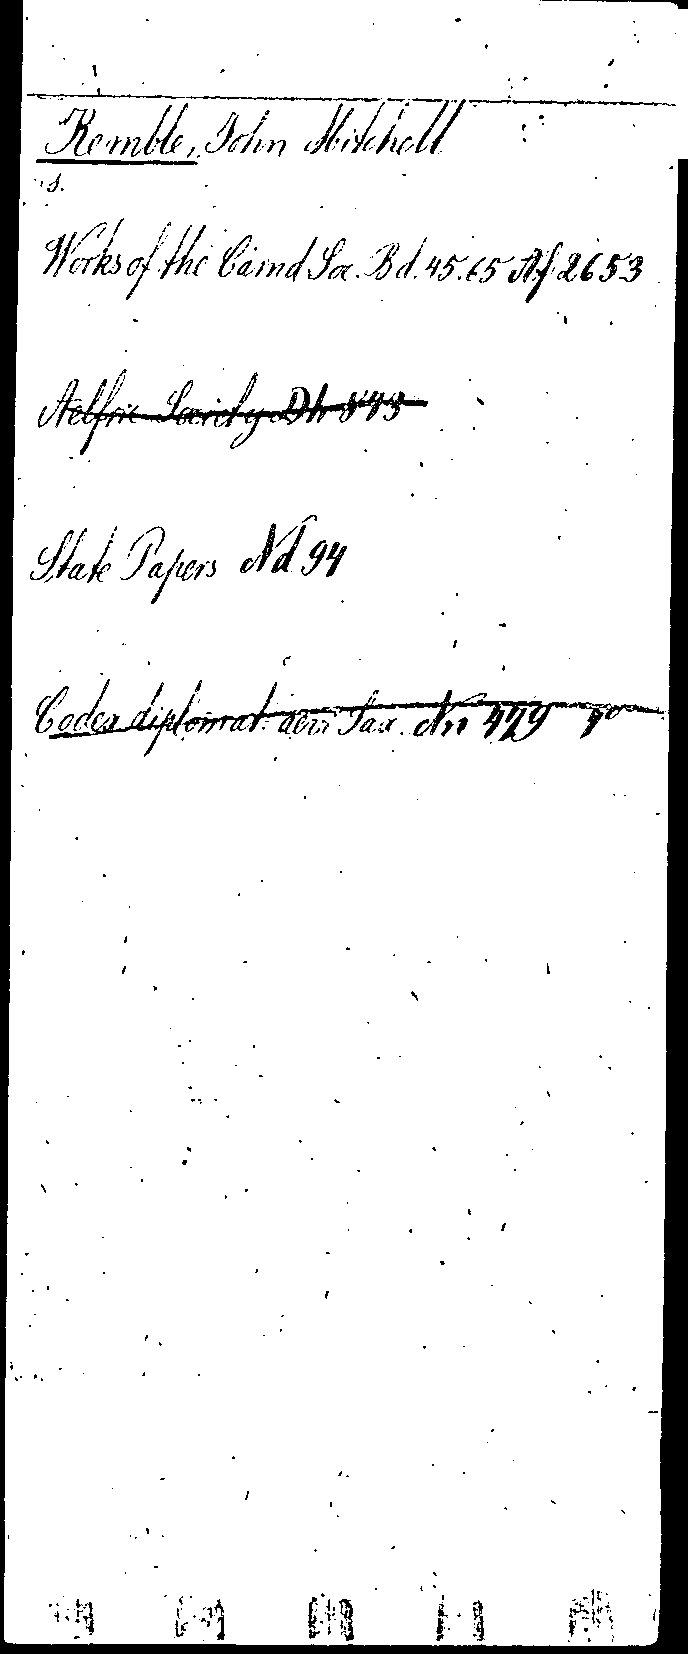 Kemble, John Mitchell
s.
Works of the Camd Soc. Bd. 45. 65 Nf 2653
Aelfric Society Dh 843
State Papers Nd 94
Codex diplomat. aevi Sax. Nn 479 4°